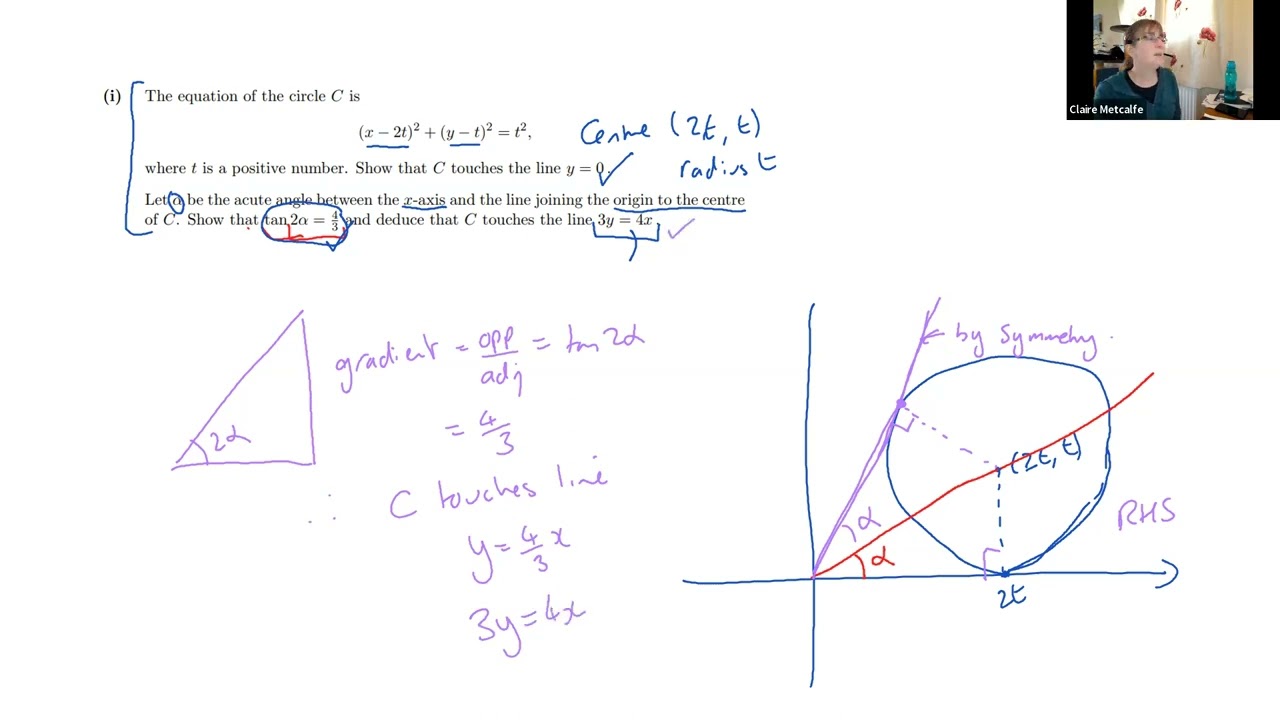 Claire Metcalfe
(i) The equation of the circle C is
(x − 2t)² + (y − t)² = t²,
Centre (2t, t)
radius t
where t is a positive number. Show that C touches the line y = 0.
Let α be the acute angle between the x-axis and the line joining the origin to the centre
of C. Show that tan 2α = 4/3 and deduce that C touches the line 3y = 4x
gradient = opp/adj = tan 2α
2α
= 4/3
∴ C touches line
y = 4/3 x
3y = 4x
← by symmetry.
(2t, t)
RHS
α
α
2t